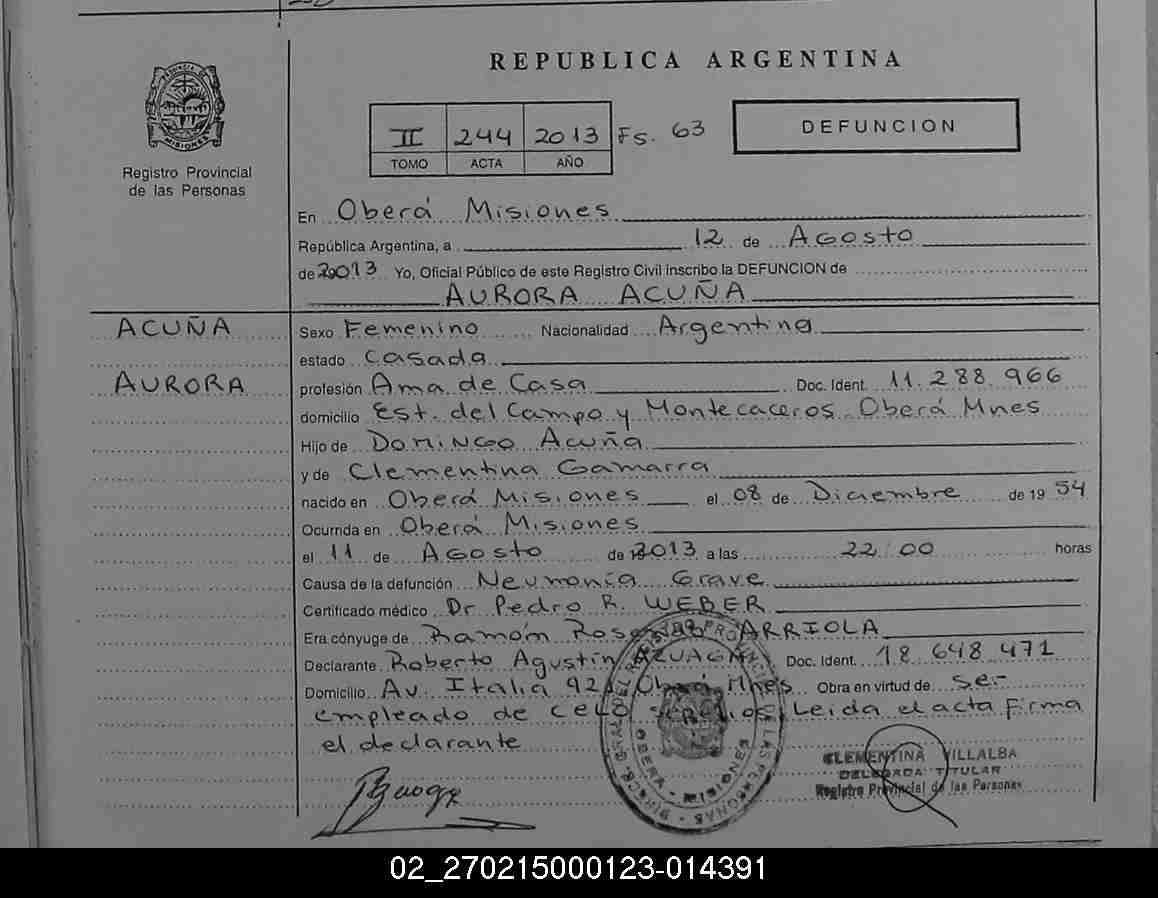 REPUBLICA ARGENTINA
PROVINCIA DE MISIONES
Registro Provincial
de las Personas
II 244 2013 Fs. 63
TOMO ACTA AÑO
DEFUNCION
En Oberá Misiones
República Argentina, a 12 de Agosto
de 2013 Yo, Oficial Público de este Registro Civil inscribo la DEFUNCION de
AURORA ACUÑA
ACUÑA
AURORA
Sexo Femenino Nacionalidad Argentina
estado Casada
profesión Ama de Casa Doc. Ident. 11.288.966
domicilio Est. del Campo y Montecaceros Oberá Mnes
Hijo de Domingo Acuña
y de Clementina Gamarra
nacido en Oberá Misiones el 08 de Diciembre de 1954
Ocurrida en Oberá Misiones
el 11 de Agosto de 2013 a las 22:00 horas
Causa de la defunción Neumonía Grave
Certificado médico Dr. Pedro R. WEBER
Era cónyuge de Ramón ARRIOLA
Declarante Roberto Agustín Doc. Ident. 18.648.471
Domicilio Av. Italia Oberá Mnes Obra en virtud de Ser-
empleado de Leida el acta firma
el declarante
OBERA - MISIONES
CLEMENTINA VILLALBA
DELEGADA TITULAR
Registro Provincial de las Personas
02_270215000123-014391